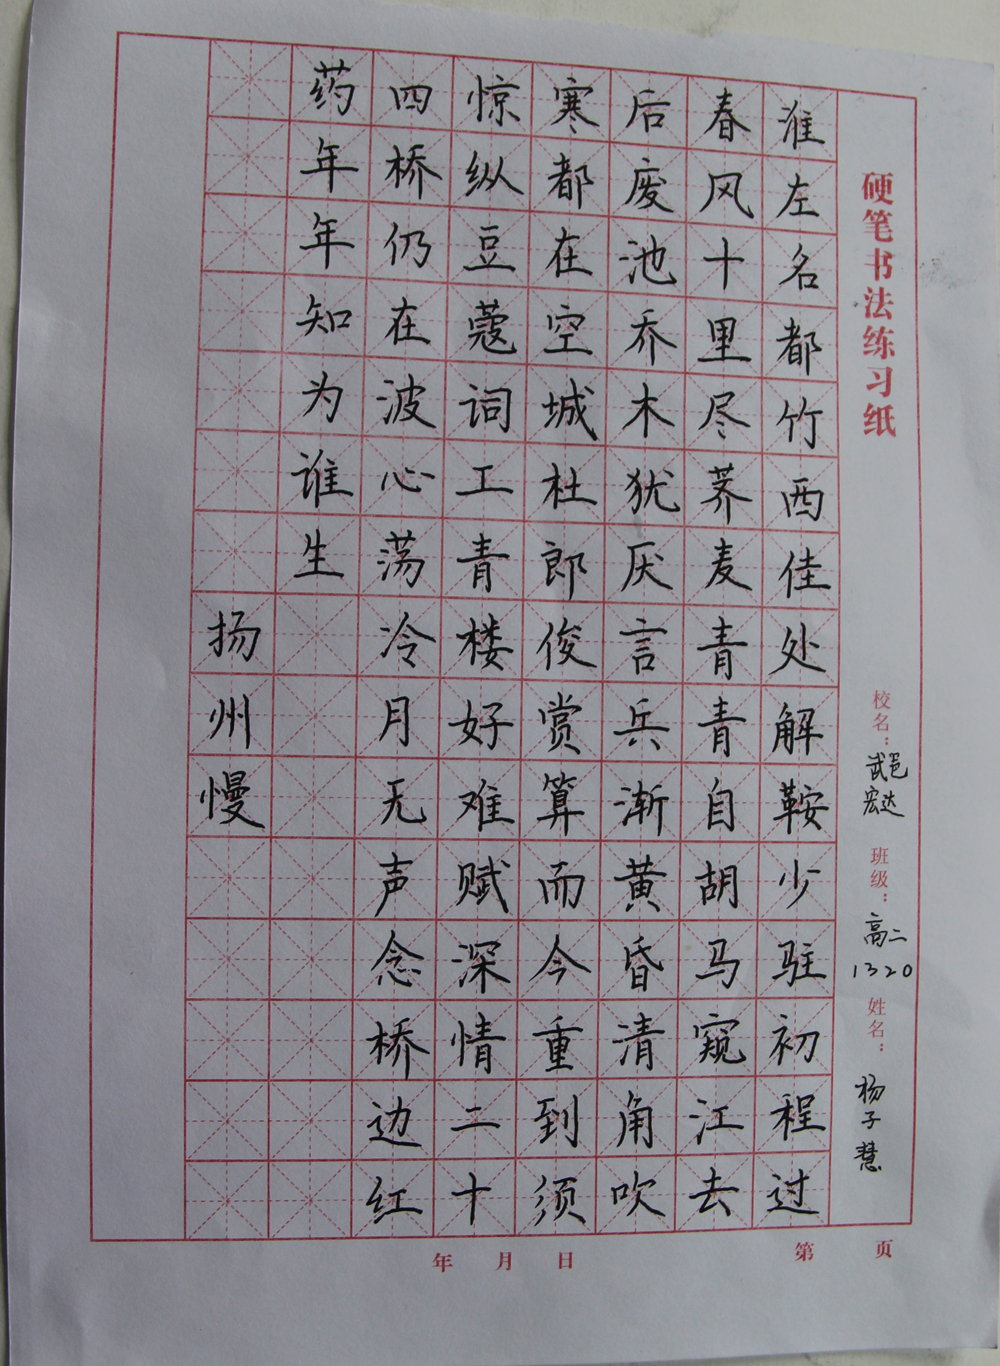 硬笔书法练习纸
校名：武邑宏达 班级：高二1320 姓名：杨子慧
淮左名都竹西佳处解鞍少驻初程过
春风十里尽荠麦青青自胡马窥江去
后废池乔木犹厌言兵渐黄昏清角吹
寒都在空城杜郎俊赏算而今重到须
惊纵豆蔻词工青楼好难赋深情二十
四桥仍在波心荡冷月无声念桥边红
药年年知为谁生
扬州慢
年 月 日
第 页